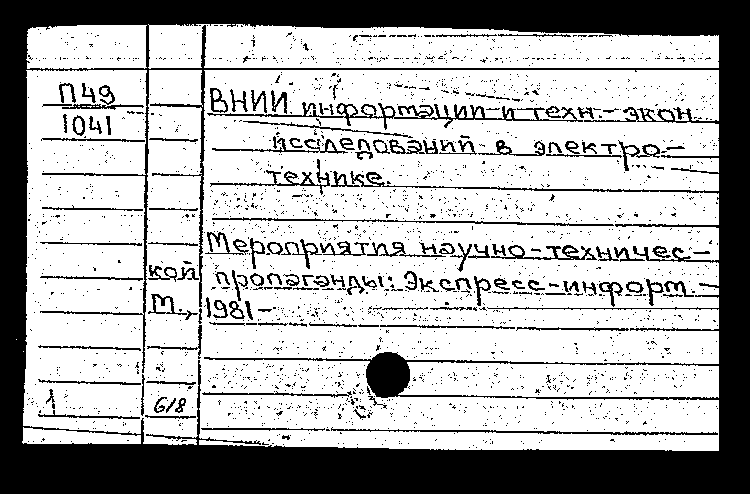 П49
1041
ВНИИ информации и техн.-экон.
исследований в электро-
технике.
Мероприятия научно-техничес-
кой пропаганды: Экспресс-информ.-
М., 1981-
1 б/8